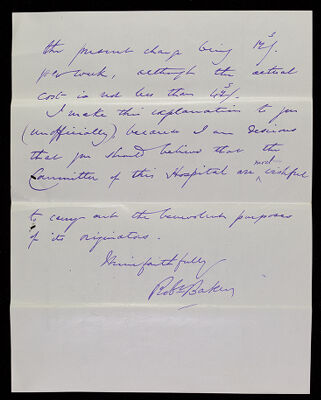 the present charge being 12s/.
per week, although the actual
cost is not less than 42s/.
I make this explanation to you
(unofficially) because I am desirous
that you should believe that the
Committee of this Hospital are most wishful
to carry out the benevolent purposes
of its originators.
Yours faithfully
Robt Baker